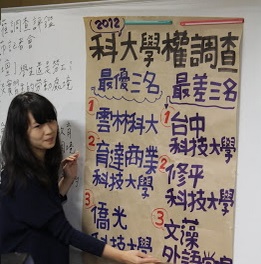 (2012)
科大學權調查
最優三名
1 雲林科大
2 育達商業
科技大學
3 僑光
科技大學
最差三名
1 台中
科技大學
2 修平
科技大學
3 文藻
外語
調查評鑑
記者會